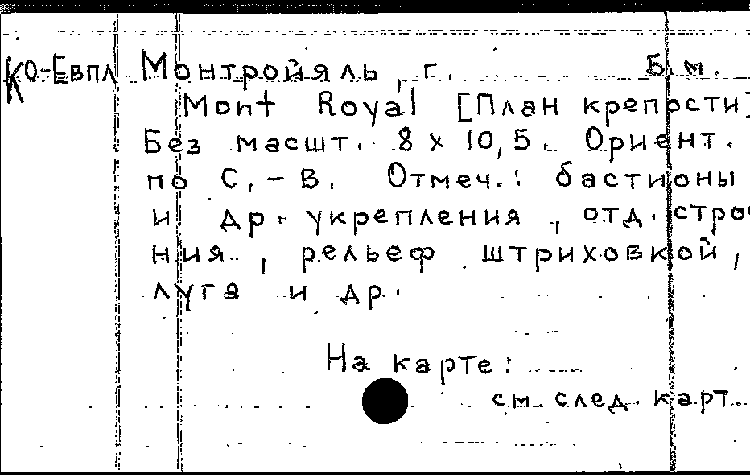 Ко-Евпл Монтройяль, г. Б.м.
Mont Royal [План крепости]
Без масшт. 8 х 10,5. Ориент.
по С.-В. Отмеч.: бастионы
и др. укрепления, отд. строе
ния, рельеф штриховкой,
луга и др.
На карте:
см. след. карт.